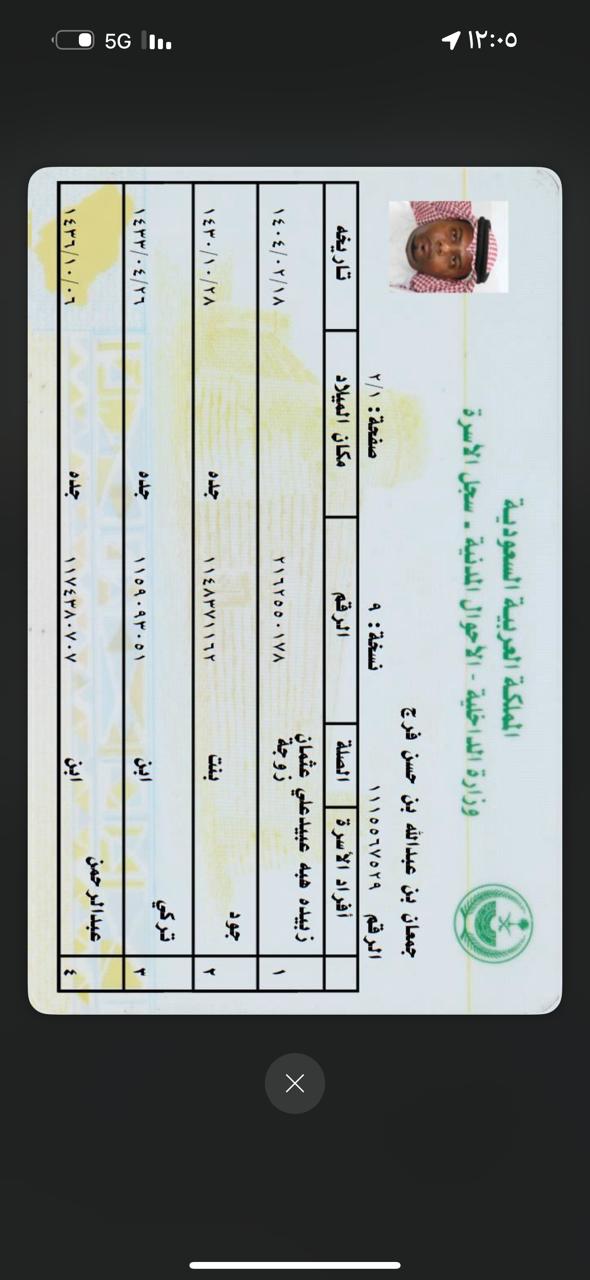 ١٢:٠٥
5G
المملكة العربية السعودية
وزارة الداخلية - الأحوال المدنية - سجل الأسرة
جمعان بن عبدالله بن حسن فرج
الرقم ١١١٥٥٦٧٥٢٩ نسخة: ٩ صفحة: ٢/١
أفراد الأسرة الصلة الرقم مكان الميلاد تاريخه
١ زبيده هبه عبيدعلي عثمان زوجة ٢١٦٢٥٥٠١٧٨ ١٤٠٤/٠٢/١٨
٢ جود بنت ١١٤٨٣٧١١٦٢ جده ١٤٣٠/١٠/٢٨
٣ تركي ابن ١١٥٩٠٩٣٠٥١ جده ١٤٣٣/٠٤/٢٦
٤ عبدالرحمن ابن ١١٧٤٣٨٠٧٠٧ جده ١٤٣٦/١٠/٠٦